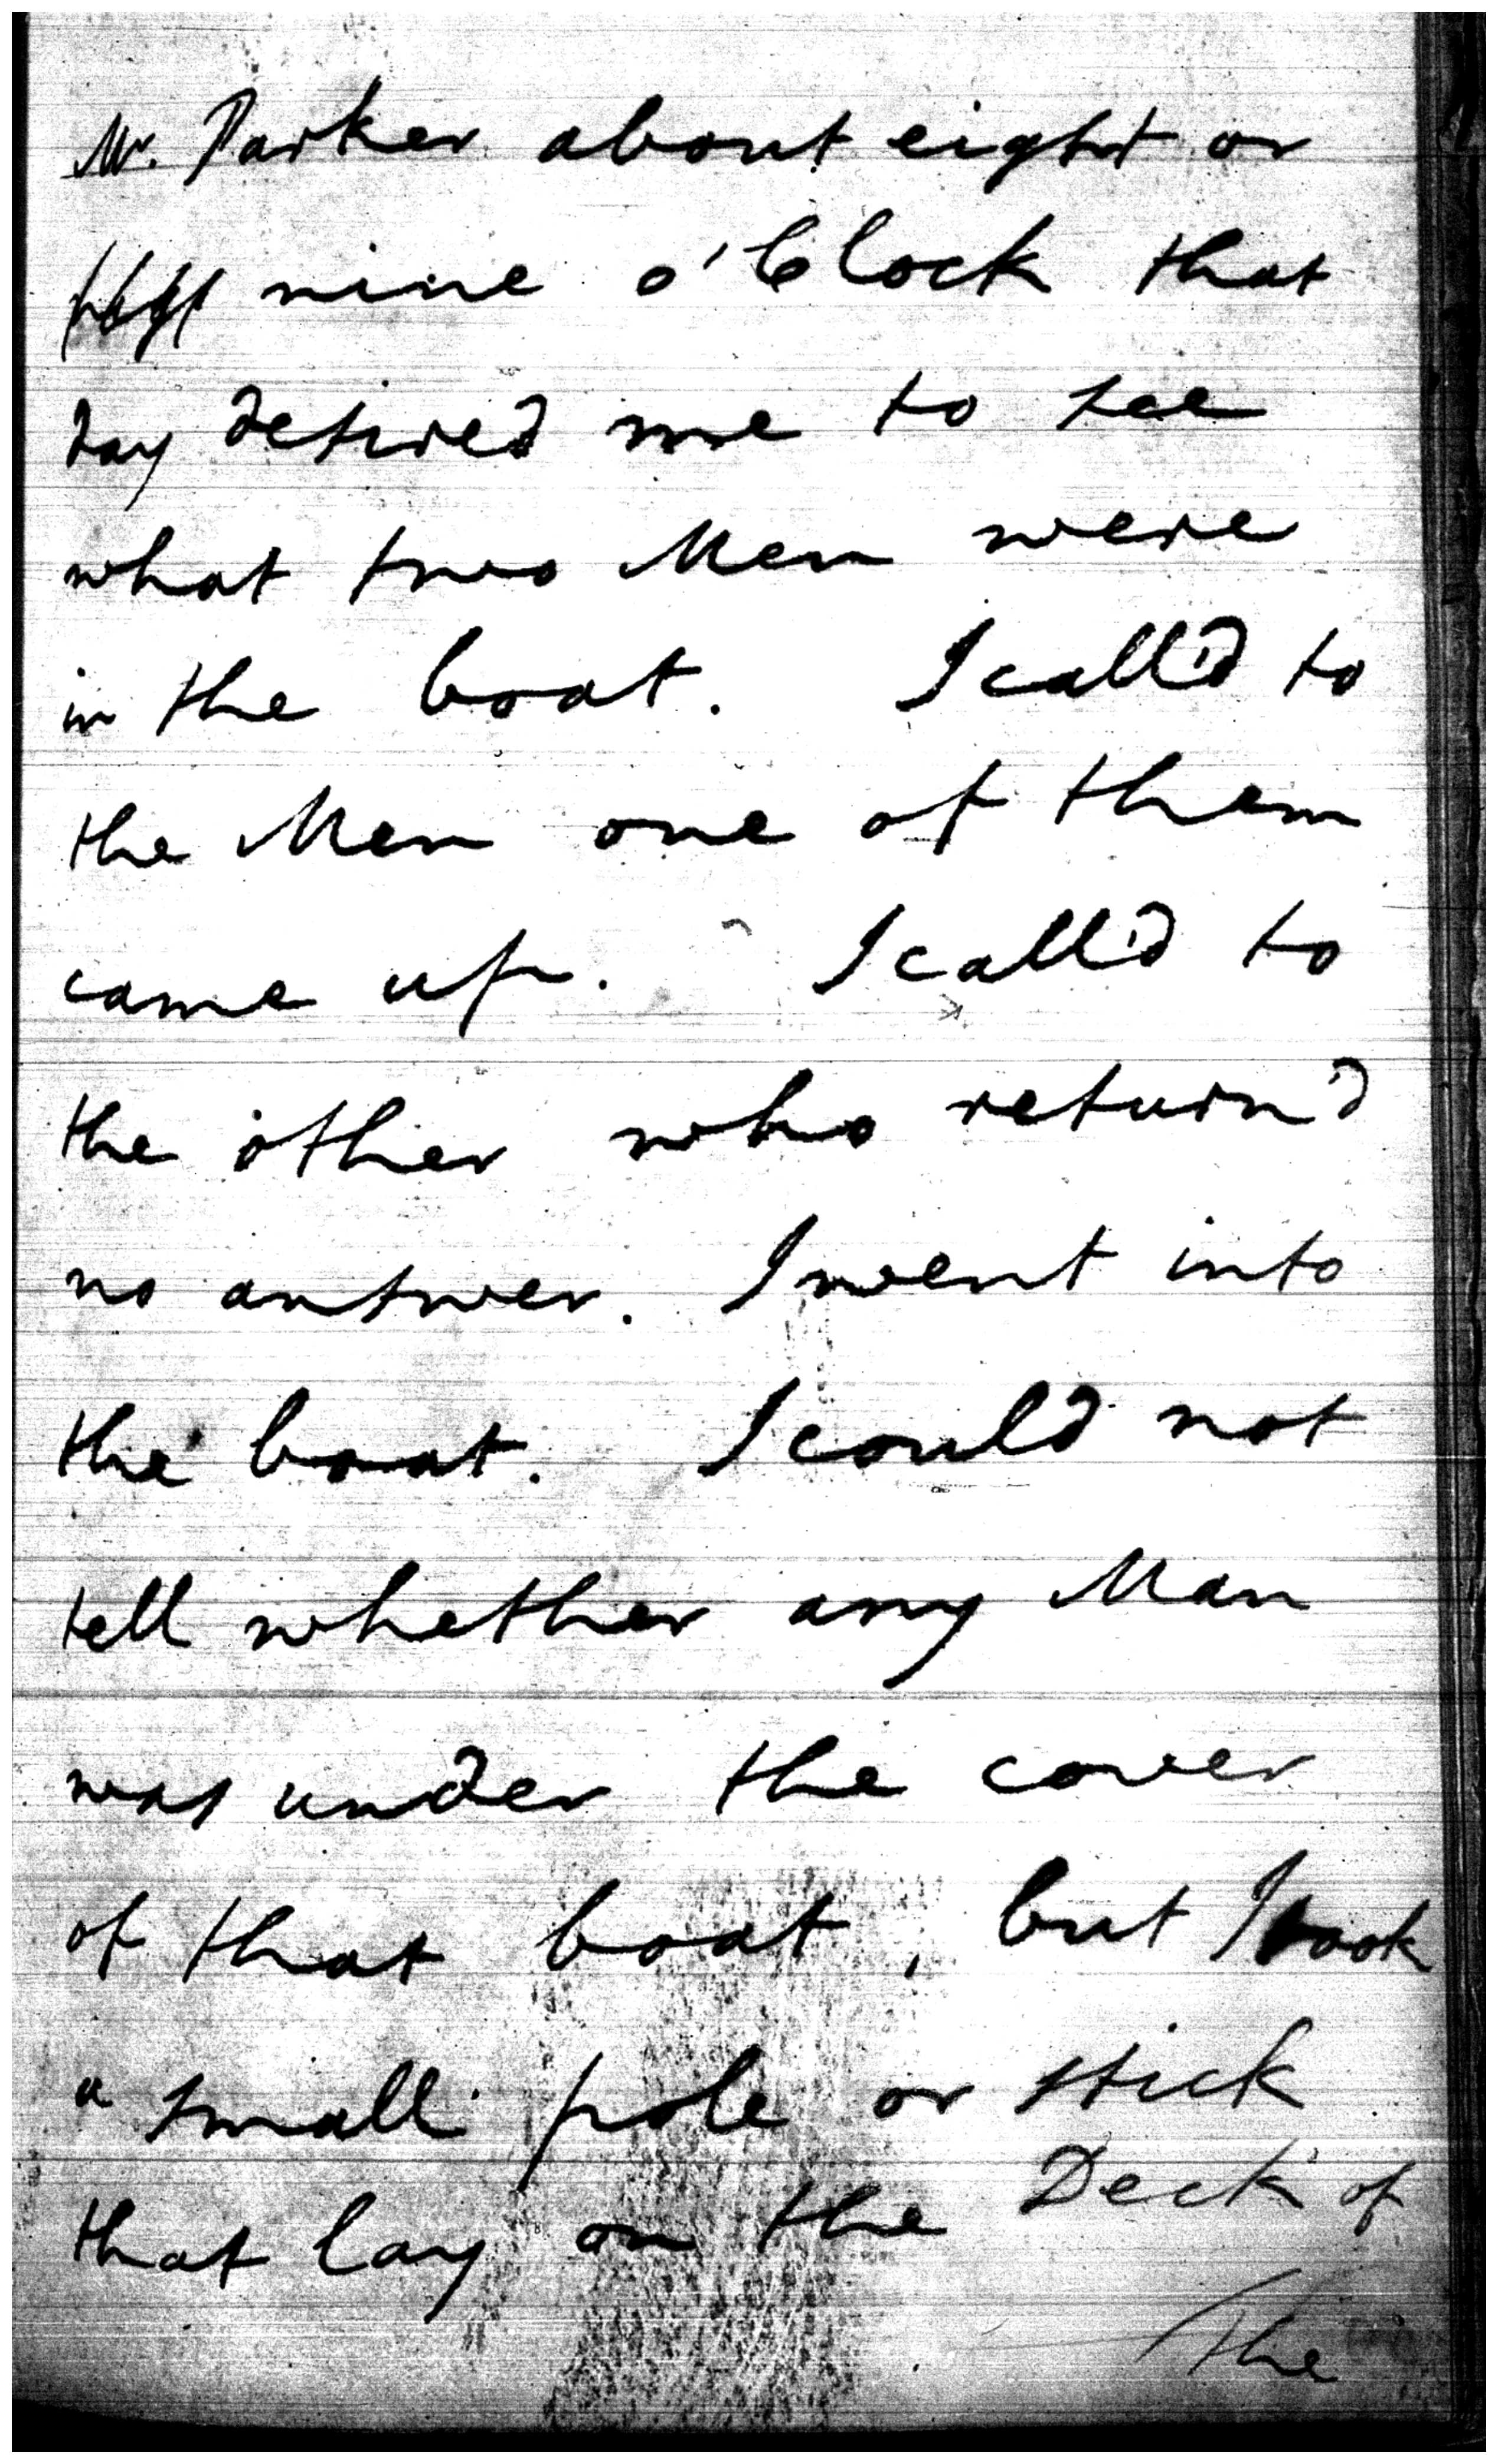 Mr. Parker about eight or
nine o'Clock that
day desired me to see
what two Men were
in the boat. I call'd to
the Men one of them
came up. I call'd to
the other who return'd
no answer. I went into
the boat. I could not
tell whether any Man
was under the cover
of that boat, but I took
a small pole or stick
that lay on the Deck of
the